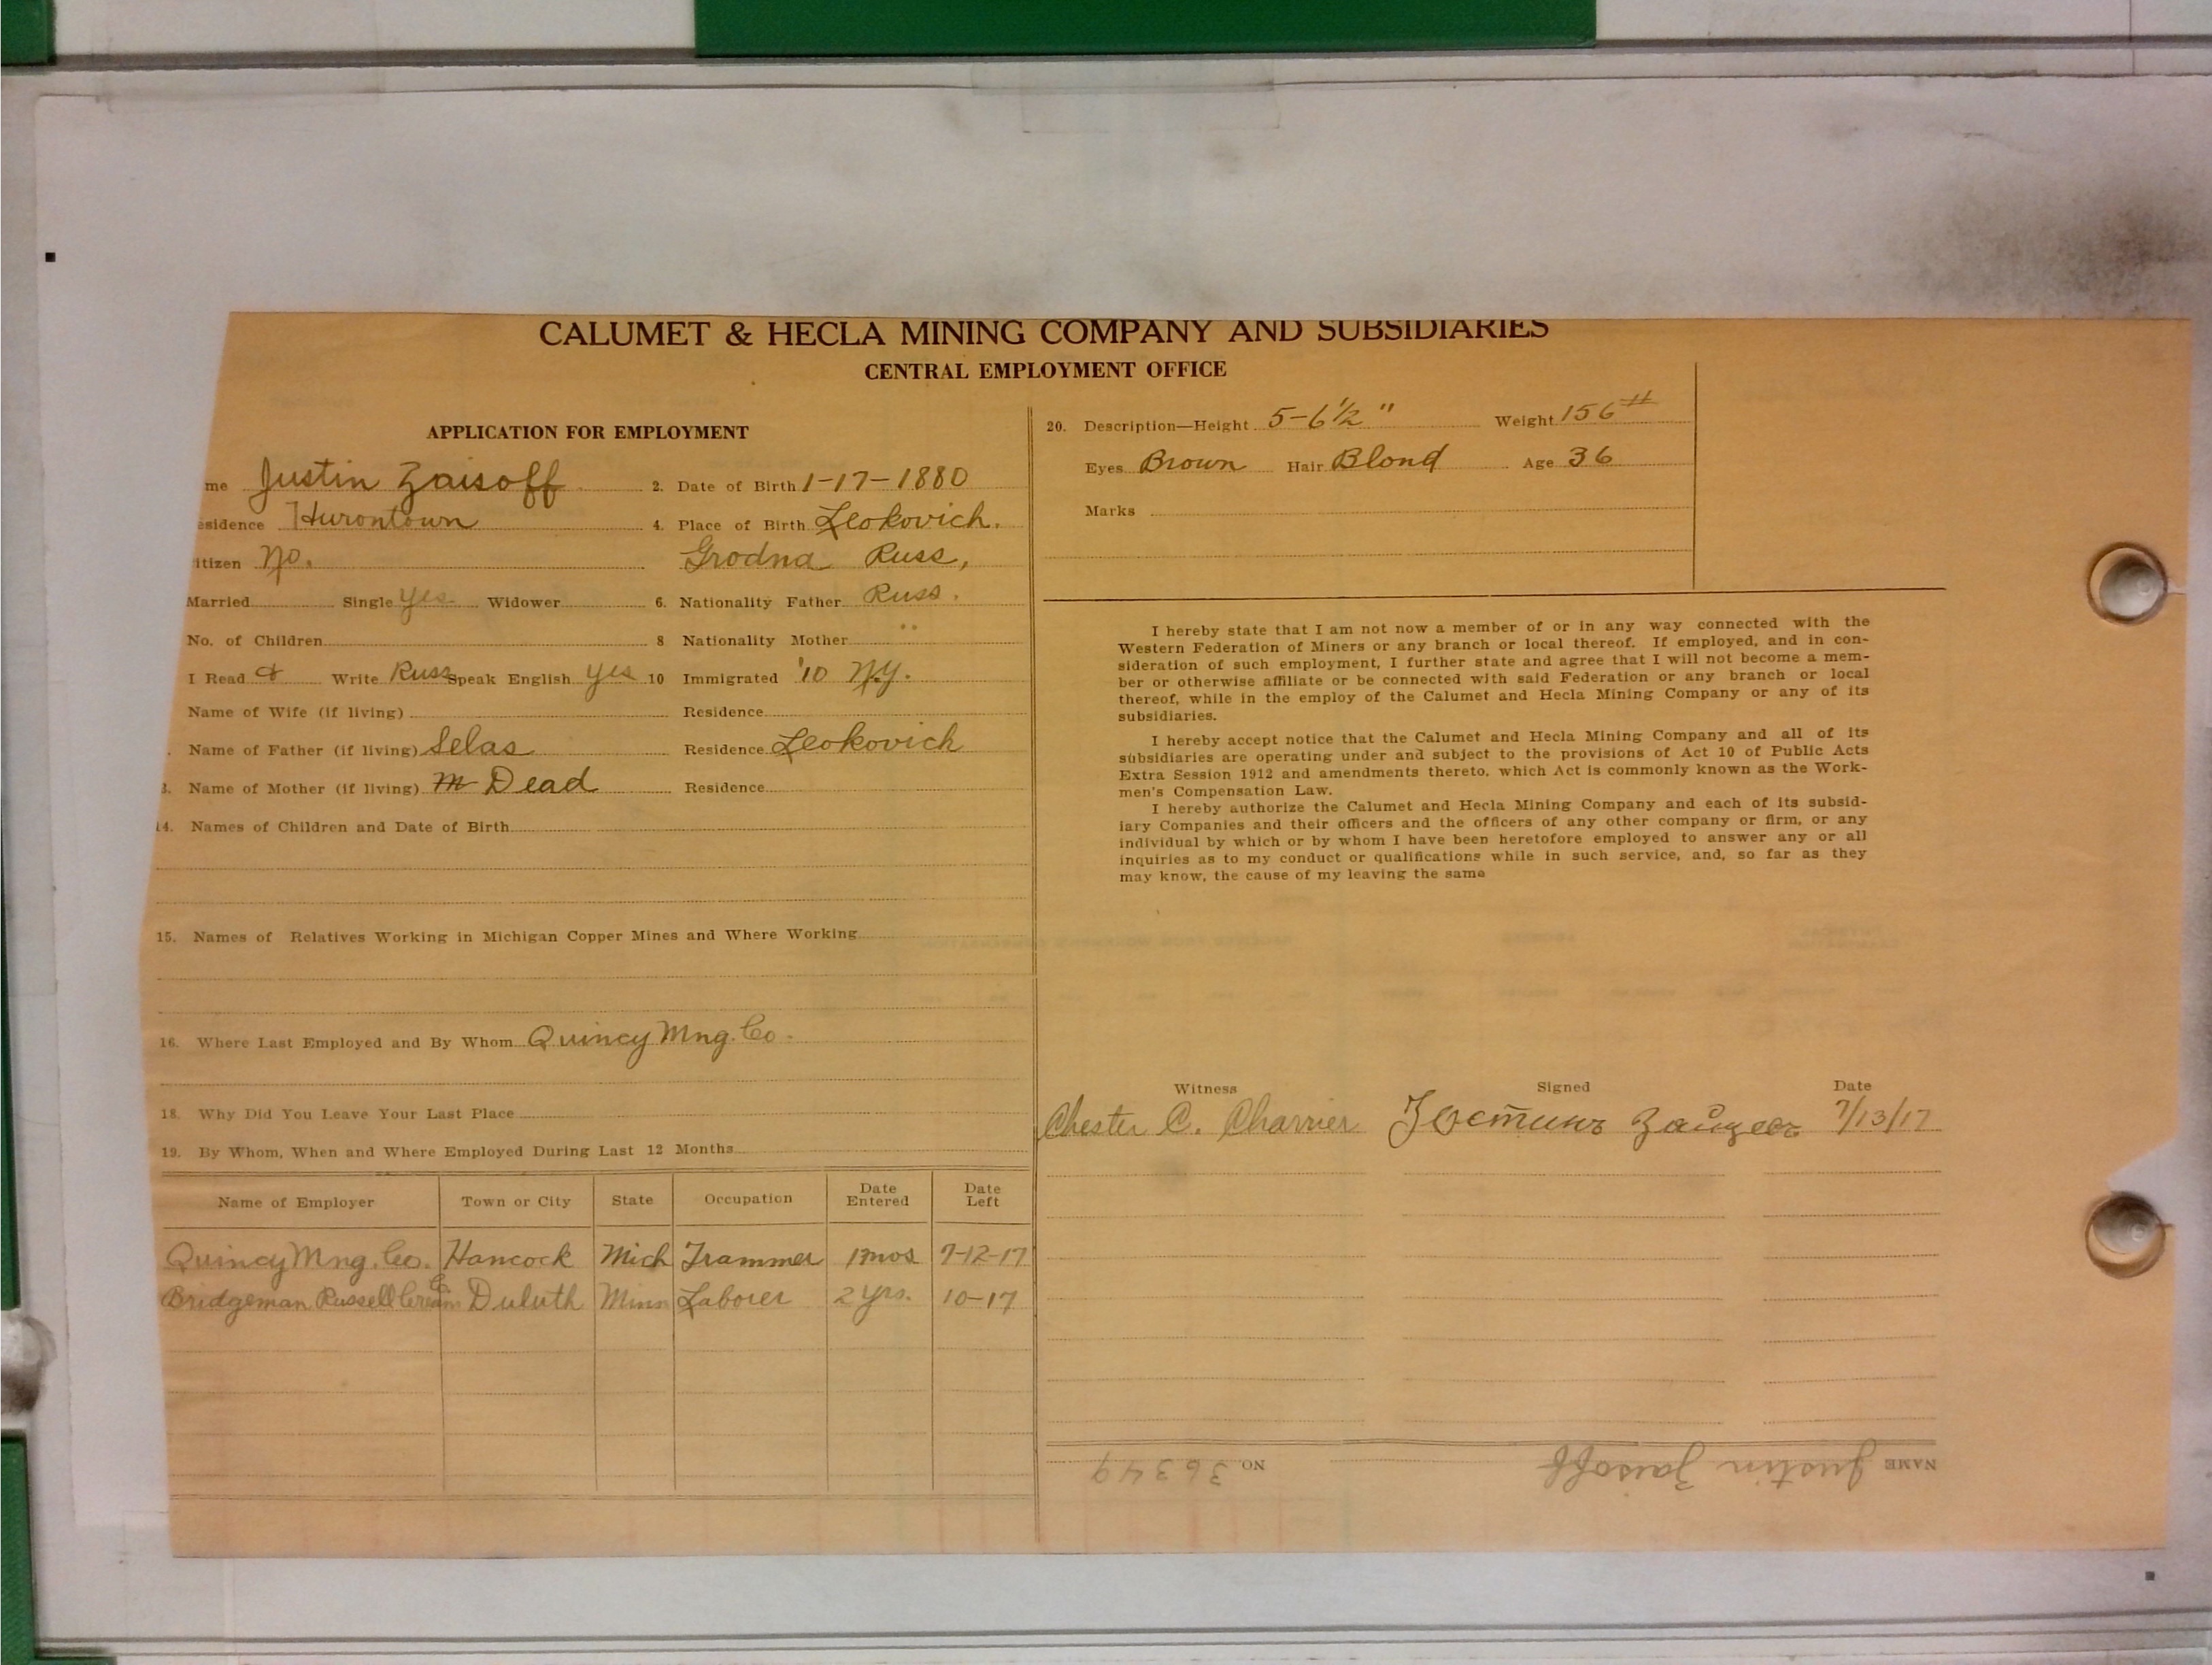 CALUMET & HECLA MINING COMPANY AND SUBSIDIARIES
CENTRAL EMPLOYMENT OFFICE
APPLICATION FOR EMPLOYMENT
me Justin Zaisoff 2. Date of Birth 1-17-1880
esidence Hurontown 4. Place of Birth Leokovich.
itizen No. Grodna Russ,
Married Single Yes Widower 6. Nationality Father Russ.
No. of Children 8 Nationality Mother "
I Read & Write Russ Speak English Yes 10 Immigrated '10 N.Y.
Name of Wife (if living) Residence
. Name of Father (if living) Selas Residence Leokovich
3. Name of Mother (if living) Dead Residence
14. Names of Children and Date of Birth
15. Names of Relatives Working in Michigan Copper Mines and Where Working
16. Where Last Employed and By Whom Quincy Mng. Co.
18. Why Did You Leave Your Last Place
19. By Whom, When and Where Employed During Last 12 Months
Name of Employer Town or City State Occupation Date Entered Date Left
Quincy Mng. Co. Hancock Mich Trammer 7-12-17
Bridgeman Russell Co. Duluth Minn Laborer 2 yrs. 10-17
20. Description—Height 5-6½" Weight 156#
Eyes Brown Hair Blond Age 36
Marks
I hereby state that I am not now a member of or in any way connected with the
Western Federation of Miners or any branch or local thereof. If employed, and in con-
sideration of such employment, I further state and agree that I will not become a mem-
ber or otherwise affiliate or be connected with said Federation or any branch or local
thereof, while in the employ of the Calumet and Hecla Mining Company or any of its
subsidiaries.
I hereby accept notice that the Calumet and Hecla Mining Company and all of its
subsidiaries are operating under and subject to the provisions of Act 10 of Public Acts
Extra Session 1912 and amendments thereto, which Act is commonly known as the Work-
men's Compensation Law.
I hereby authorize the Calumet and Hecla Mining Company and each of its subsid-
iary Companies and their officers and the officers of any other company or firm, or any
individual by which or by whom I have been heretofore employed to answer any or all
inquiries as to my conduct or qualifications while in such service, and, so far as they
may know, the cause of my leaving the same
Witness Signed Date
Chester C. Charrier Юстинъ Зайцевъ 7/13/17
NAME Justin Zaisoff NO. 36349